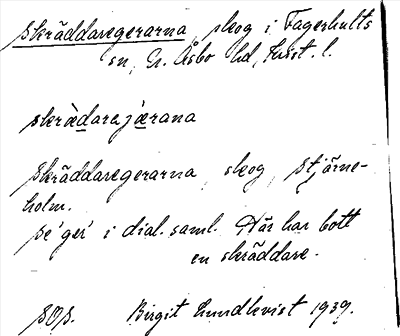 skräddaregerarna, skog i Fagerhults
sn, N. Åsbo hd, Krist. l.
skrädarajærana
Skräddaregerarna, skog, Stjärne-
holm.
se 'ger' i dial. saml. Här har bott
en skräddare.
SOS. Birgit Lundkvist 1939.